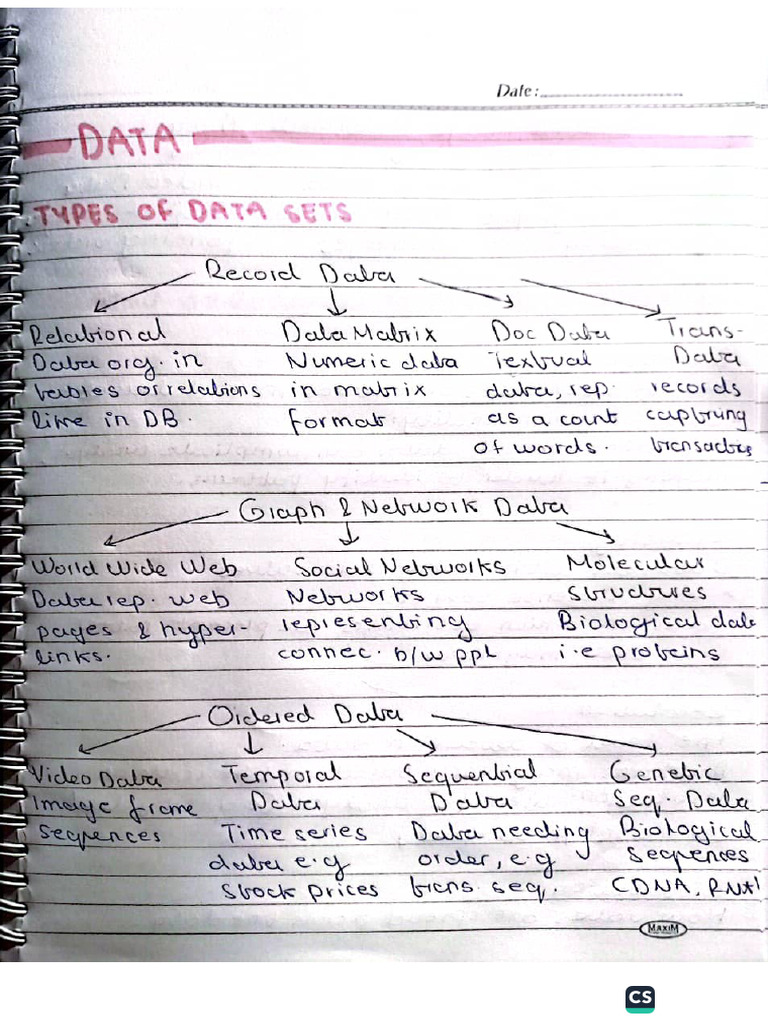 Date:
DATA
TYPES OF DATA SETS
Record Data
Relational Data Matrix Doc Data Trans-
Data org. in Numeric data Textual Data
tables or relations in matrix data, rep. records
like in DB. format as a count capturing
of words. transactns
Graph & Network Data
World Wide Web Social Networks Molecular
Data rep. web Networks structures
pages & hyper- representing Biological data
links. connec. b/w ppl i.e proteins
Ordered Data
Video Data Temporal Sequential Genetic
Image frame Data Data Seq. Data
sequences Time series Data needing Biological
data e.g order, e.g sequences
stock prices trans. seq. (DNA, RNA)
MAXIM
CS